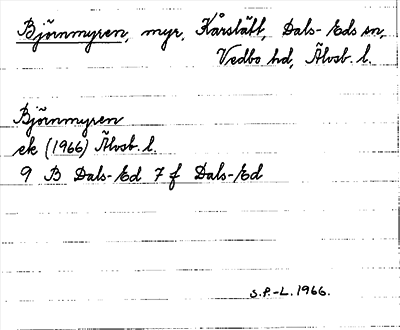 Björnmyren, myr, Kårslätt, Dals-Eds sn,
Vedbo hd, Älvsb. l.
Björnmyren
ek (1966) Älvsb. l.
9 B Dals-Ed 7 f Dals-Ed
S.P.-L. 1966.